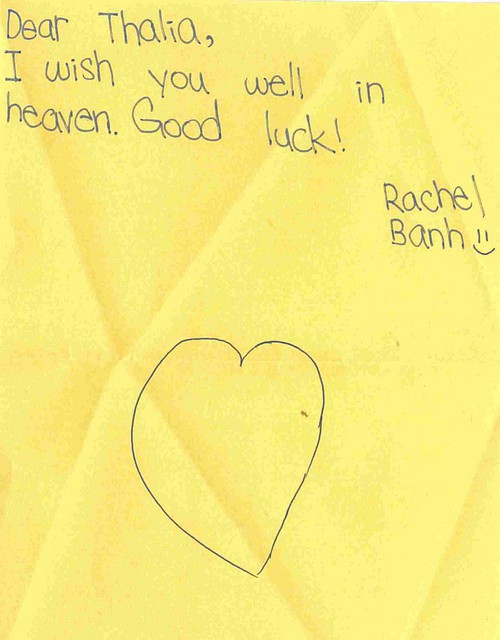 Dear Thalia,
I wish you well in
heaven. Good luck!
Rachel
Banh